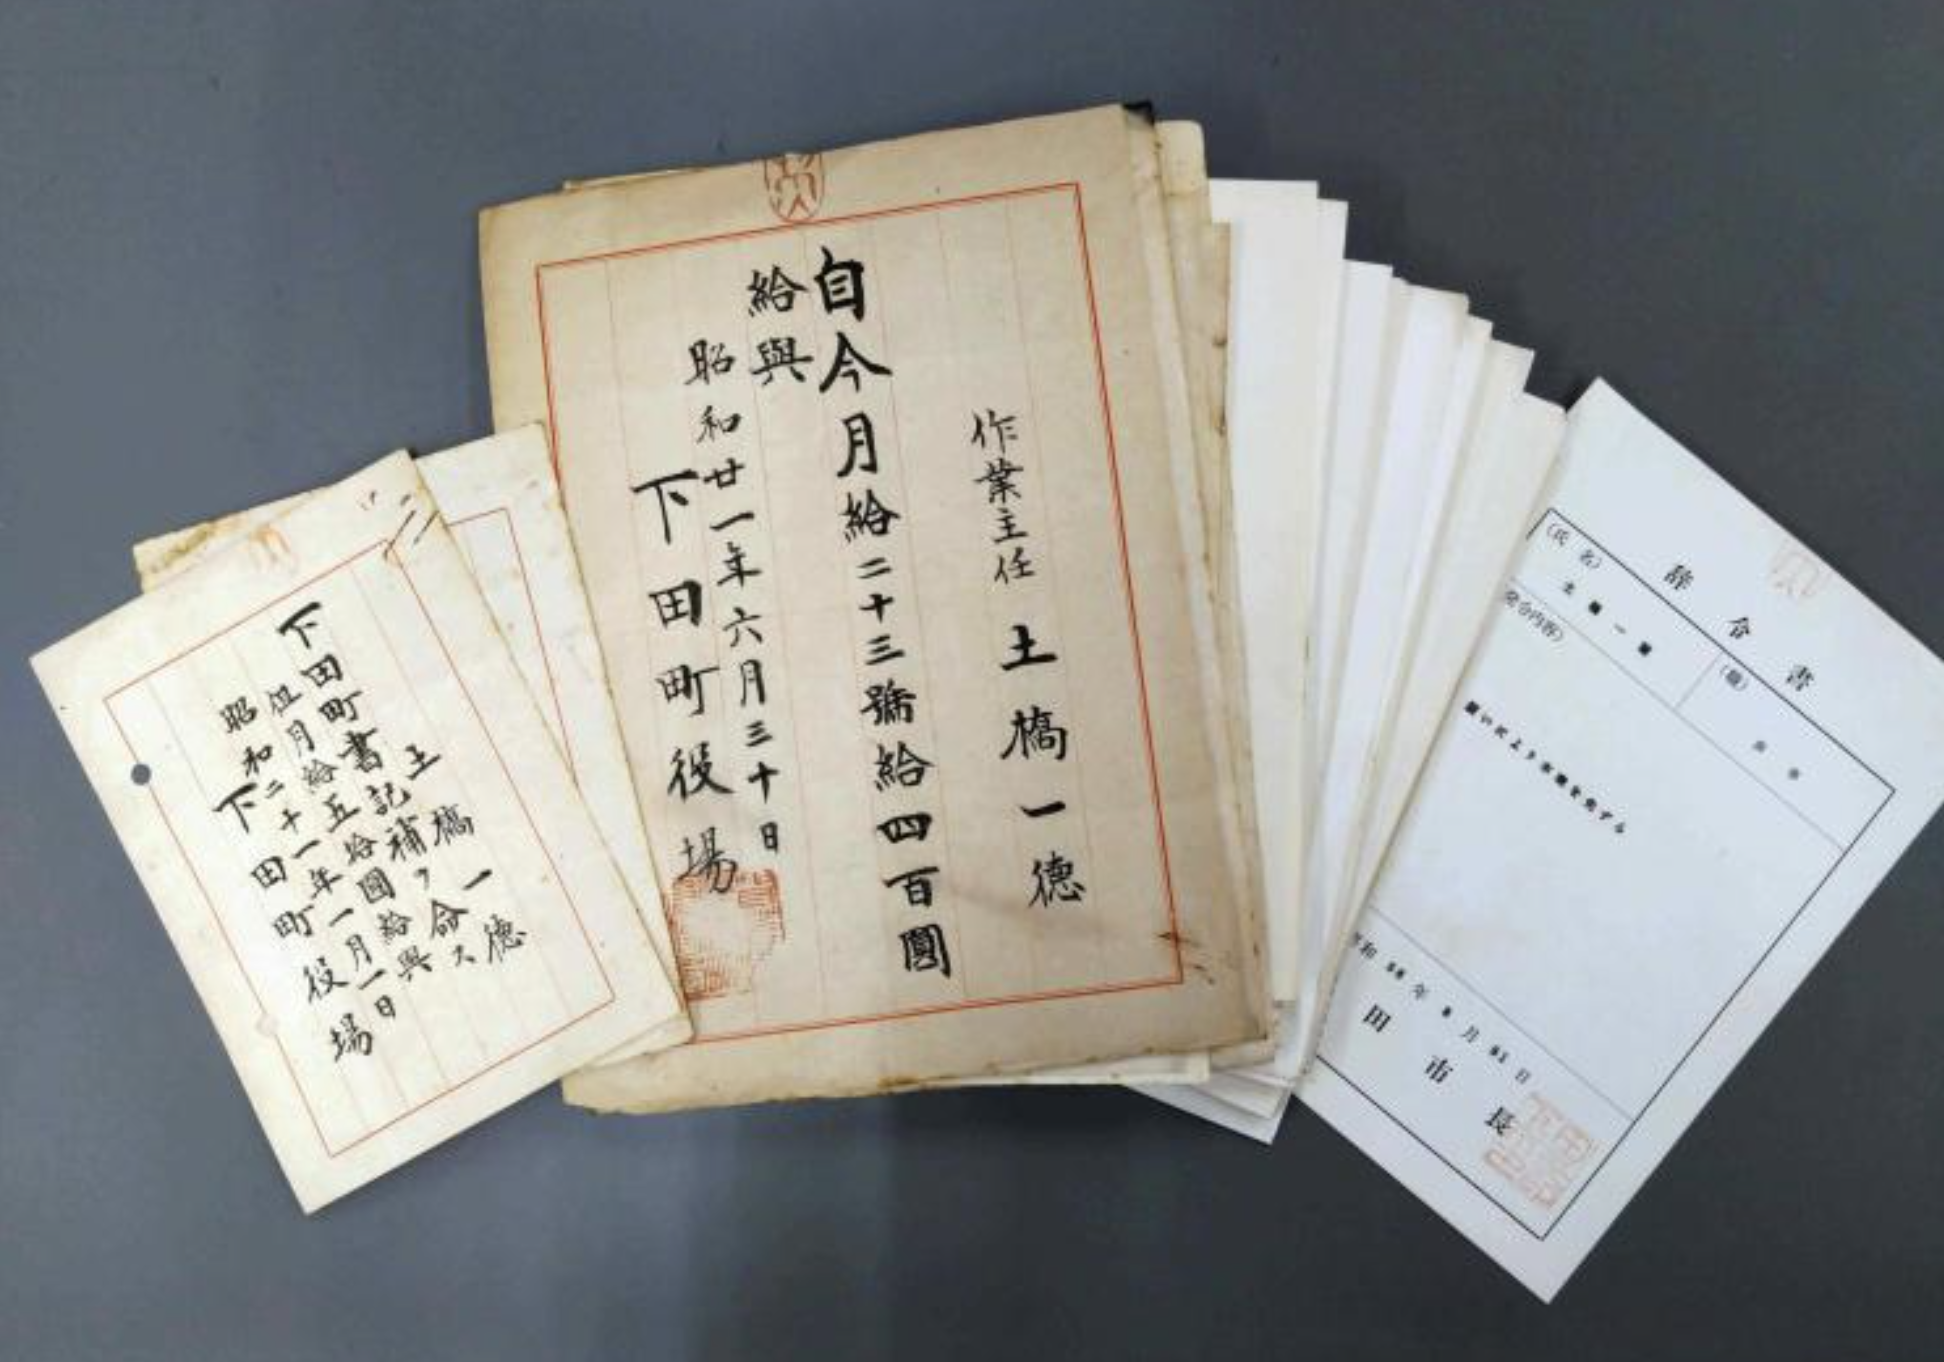 土橋一德
下田町書記補ヲ命ス
但月給五拾圓給與
昭和二十一年一月一日
下田町役場
作業主任 土橋一德
自今月給二十三號給四百圓
給與
昭和廿一年六月三十日
下田町役場
辞令書
(氏名)
土橋一
(職)
発令内容)
願いにより本職を免ずる
和58年
月31日
田市長